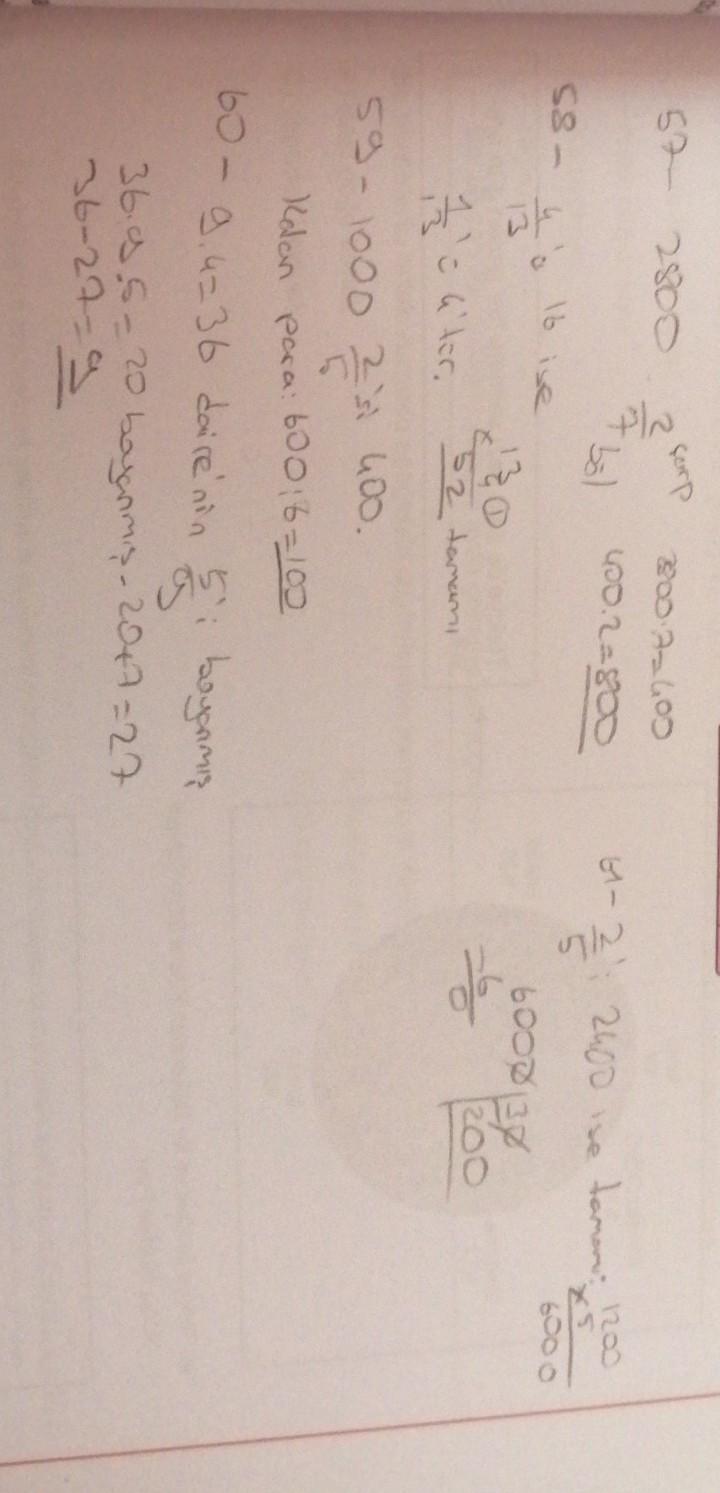 57- 2800 2/7 çarp böl 2800:7=400
400.2=800
58- 4/13'ü 16 ise
1/13'i 4'tür. 13 x 4 52 tamamı
59- 1000 2/5'si 400.
Kalan para: 600:6=100
60- 9.4=36 daire'nin 5/9'i boyanmış
36.9.5=20 boyanmış- 20+7=27
36-27=9
61- 2/5'i 2400 ise tamamı: 1200 x5 6000
6000 30
-6 200
0